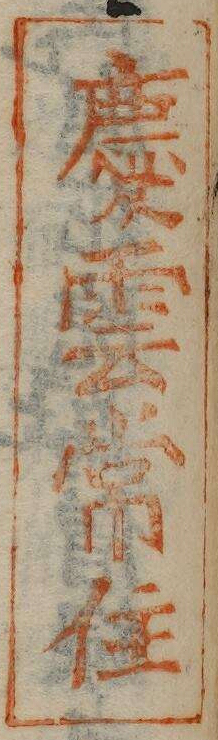 慶雲常住